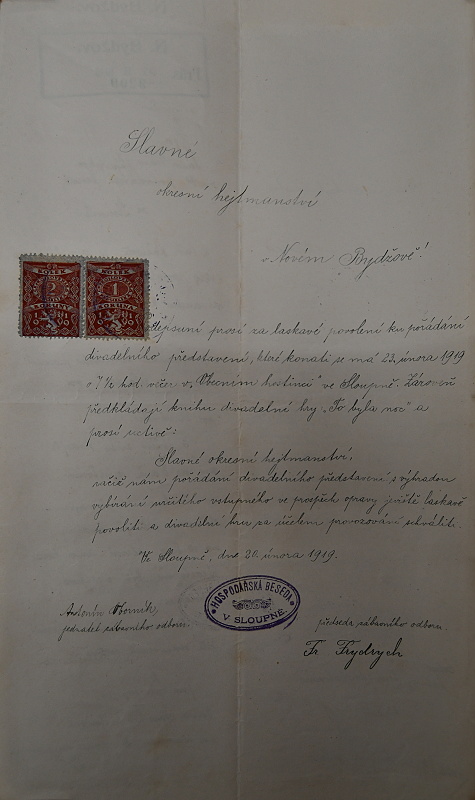 Slavné
okresní hejtmanství
v Novém Bydžově!
ČSR ČSR
KOLEK KOLEK
2 1
KORUNY KORUNA
1919 1919
prosí za laskavé povolení ku pořádání
divadelního představení, které konati se má 23. února 1919
o 7 ½ hod. večer v "Obecním hostinci" ve Sloupně. Zároveň
předkládají knihu divadelní hry "To byla noc" a
prosí uctivě:
Slavné okresní hejtmanství,
račiž nám pořádání divadelního představení s výhradou
vybírání určitého vstupného ve prospěch opravy jeviště laskavě
povoliti a divadelní hru za účelem provozování schváliti.
Ve Sloupně, dne 20. února 1919.
HOSPODÁŘSKÁ BESEDA
V SLOUPNĚ.
Antonín Oborník,
jednatel zábavního odboru.
předseda zábavního odboru.
Fr. Frydrych